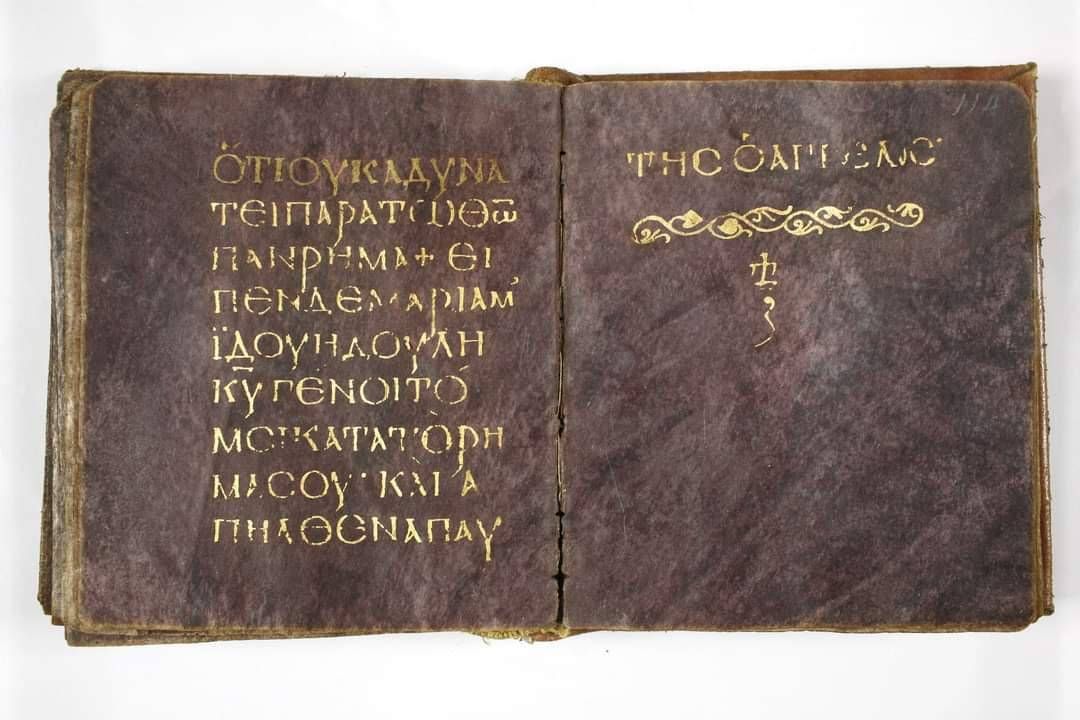 ὍΤΙΟΥΚΑΔΥΝΑ
ΤΕΙΠΑΡΑΤΩΘ͞Ω
ΠΑΝΡΗΜΑ+ ΕΙ
ΠΕΝΔΕΜΑΡΙΑΜ’
ΪΔΟΥΗΔΟΥΛΗ
Κ͞Υ ΓΕΝΟΙΤΟ
ΜΟΙΚΑΤΑΤΟΡΗ
ΜΑCΟΥ· ΚΑΙ Α
ΠΗΛΘΕΝΑΠΑΥ
114
ΤΗC ὉΑΓΓΕΛΟC·